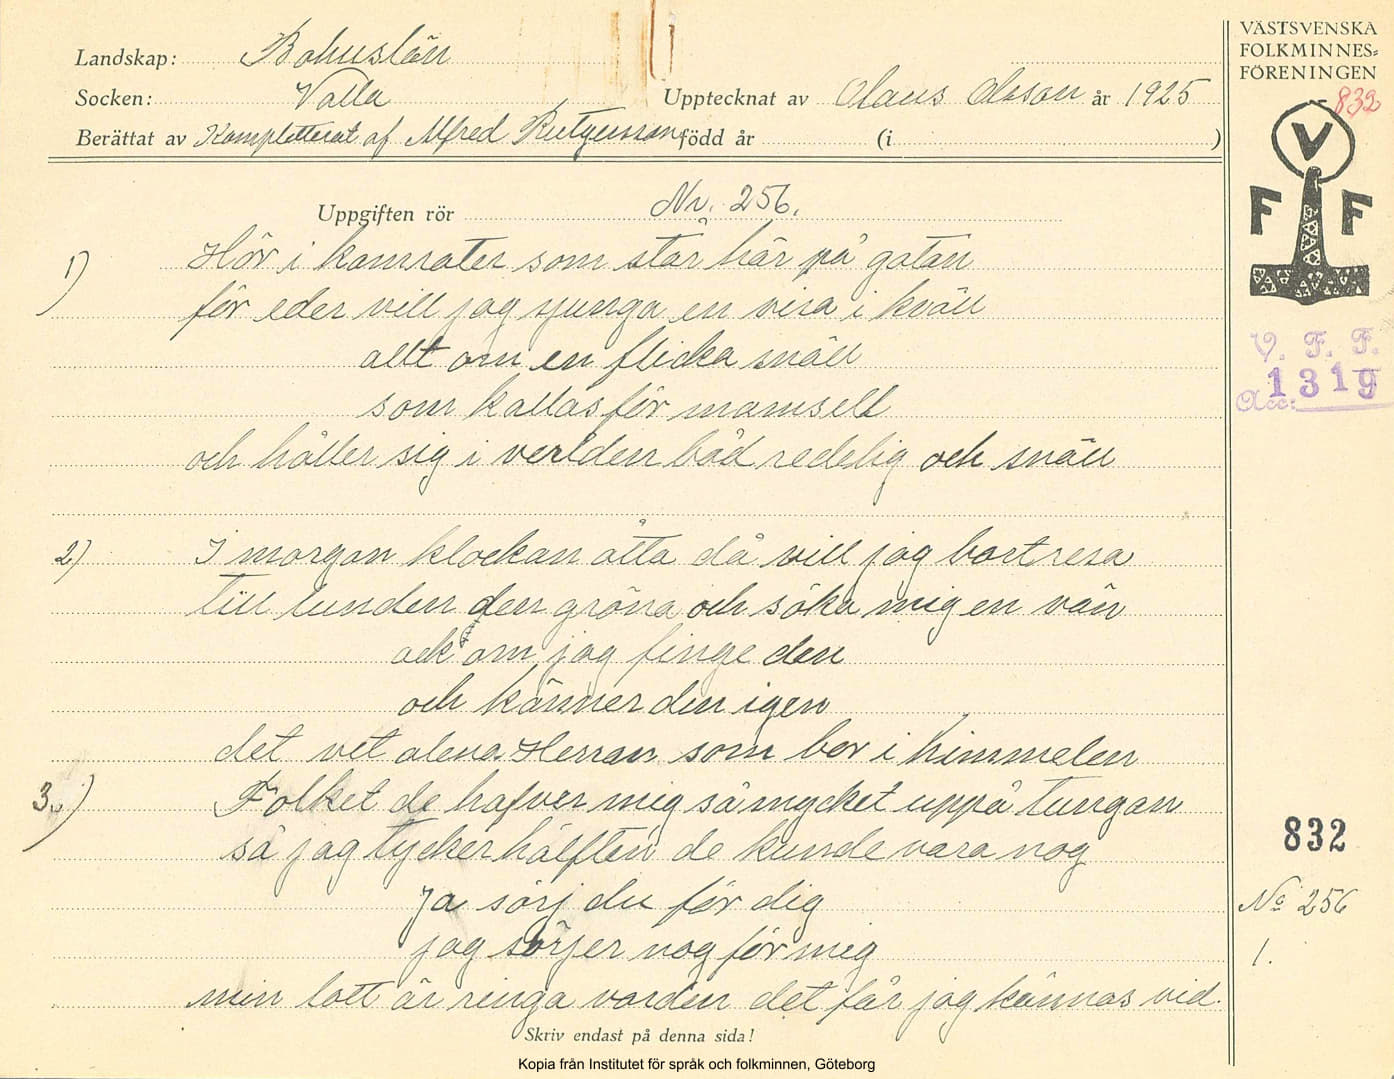 Landskap: Bohuslän
Socken: Valla
Upptecknat av Olaus Olsson år 1925
Berättat av Kompletterat af Alfred Rutgersson född år (i )
Uppgiften rör Nr. 256.
1) Hör i kamrater som står här på gatan
för eder vill jag sjunga en visa i kväll
allt om en flicka snäll
som kallas för mamsell
och håller sig i verlden båd redelig och snäll
2) I morgon klockan åtta då vill jag bort resa
till lunden den gröna och söka mig en vän
ack om jag finge den
och känner den igen
det vet alena Herran som bor i himmelen
3.) Folket de hafver mig så mycket uppå tungan
så jag tycker hälften de kunde vara nog
Ja sörj du för dig
jag sörjer nog för mig
min lott är ringa vorden det får jag kännas vid.
Skriv endast på denna sida!
Kopia från Institutet för språk och folkminnen, Göteborg
VÄSTSVENSKA
FOLKMINNES=
FÖRENINGEN
832
V
F F
V. F. F.
Acc: 1319
832
No 256
1.